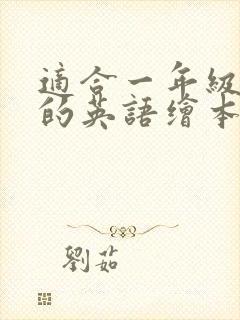 適合一年級
的英語繪本
劉茹